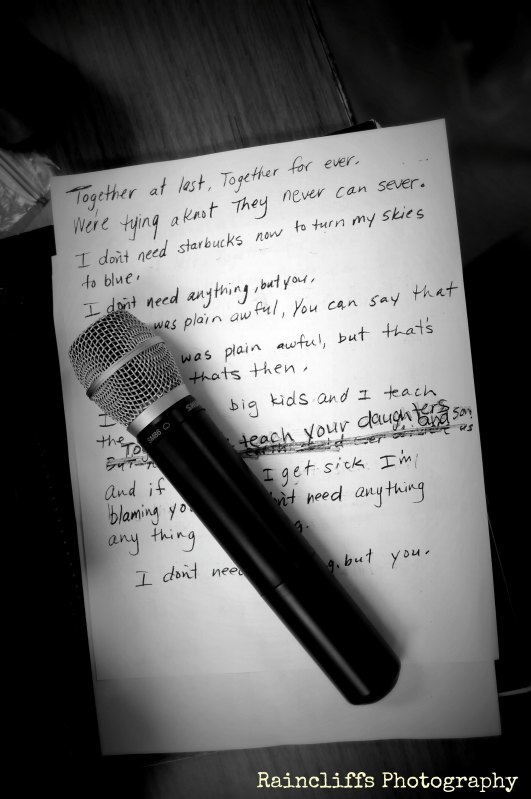 Together at last, Together for ever.
We're tying a knot They never can sever.
I don't need starbucks now to turn my skies
to blue.
I don't need anything, but you.
was plain awful, You can say that
was plain awful, but that's
thats then.
I big kids and I teach
the teach your daughters and son
And if I get sick I'm
blaming yo n't need anything
any thing g.
I don't need g. but you.
SM86
Raincliffs Photography